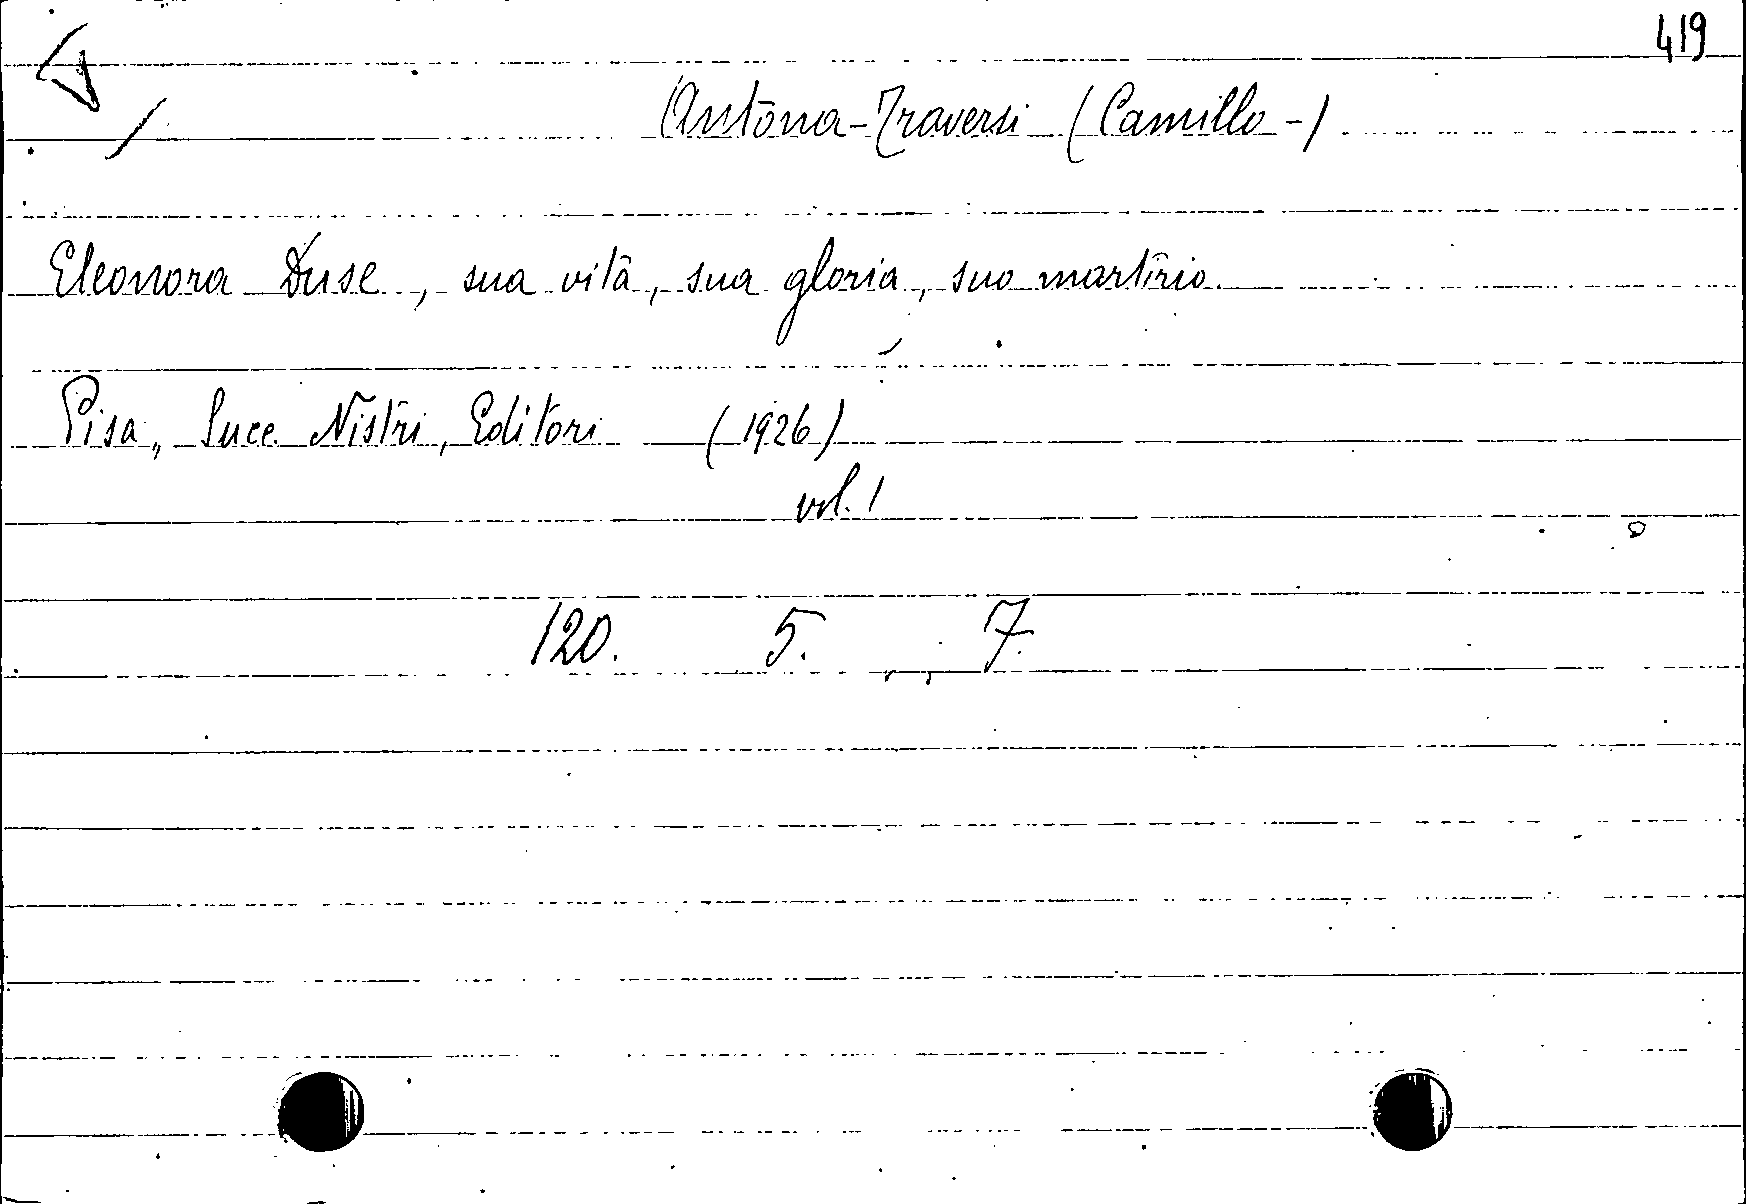 419
Antona-Traversi (Camillo-)
Eleonora Duse, sua vita, sua gloria, suo martirio.
Pisa, Succ. Nistri, Editori (1926)
vol. 1
120. 5. 7.